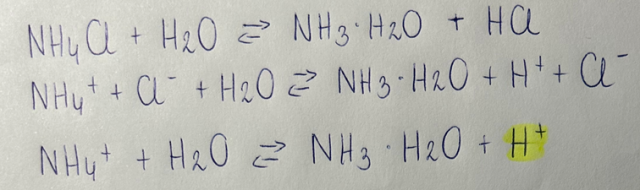 NH₄Cl + H₂O ⇄ NH₃·H₂O + HCl
NH₄⁺ + Cl⁻ + H₂O ⇄ NH₃·H₂O + H⁺ + Cl⁻
NH₄⁺ + H₂O ⇄ NH₃·H₂O + H⁺